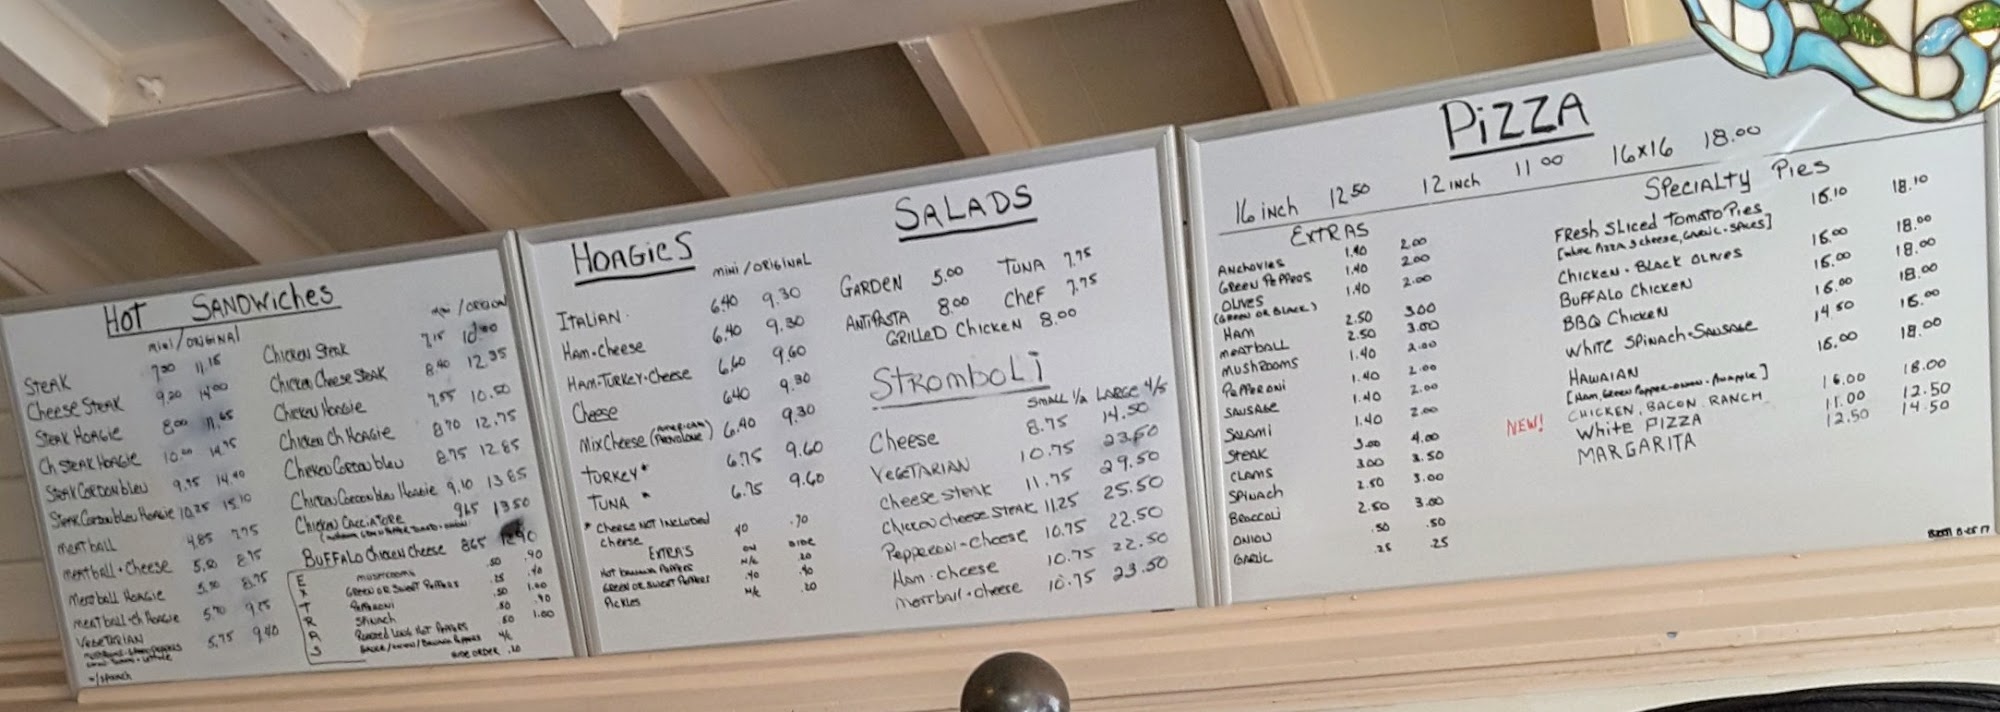 HOT SANDWICHES
mini/ORIGINAL
STEAK 7.00 11.15
CHEESE STEAK 9.20 14.00
STEAK HOAGIE 8.00 11.65
CH STEAK HOAGIE 10.00 14.75
STEAK CORDON bleu 9.95 14.40
STEAK CORDON bleu HOAGIE 10.25 15.10
MEATBALL 4.85 7.75
MEATBALL + CHEESE 5.50 8.75
MEATBALL HOAGIE 5.50 8.75
MEATBALL CH HOAGIE 5.70 9.25
VEGETARIAN 5.75 9.40
W/SPINACH
mini/ORIGION
CHICKEN STEAK 7.15 10.00
CHICKEN CHEESE STEAK 8.40 12.35
CHICKEN HOAGIE 7.55 10.50
CHICKEN CH HOAGIE 8.70 12.75
CHICKEN CORDON bleu 8.75 12.85
CHICKEN CORDON bleu HOAGIE 9.10 13.65
CHICKEN CACCIATORE 9.65 13.50
BUFFALO CHICKEN CHEESE 8.65
EXTRAS
MUSHROOMS .50 .90
GREEN OR SWEET PEPPERS .25 .40
PEPPERONI .50 1.00
SPINACH .50 .90
ROASTED LONG HOT PEPPERS .50 1.00
SAUCE/ONION/BANANA PEPPERS N/C
SIDE ORDER .20
HOAGIES
mini/ORIGINAL
ITALIAN 6.40 9.30
HAM-CHEESE 6.40 9.30
HAM-TURKEY-CHEESE 6.60 9.60
CHEESE 6.40 9.30
MIX CHEESE (AMERICAN PROVOLONE) 6.40 9.30
TURKEY* 6.75 9.60
TUNA * 6.75 9.60
* CHEESE NOT INCLUDED
CHEESE .40 .70
EXTRAS ON SIDE
HOT BANANA PEPPERS N/C .20
GREEN OR SWEET PEPPERS .40 .40
PICKLES N/C .20
SALADS
GARDEN 5.00 TUNA 7.75
ANTIPASTA 8.00 CHEF 7.75
GRILLED CHICKEN 8.00
STROMBOLI
SMALL 1/2 LARGE 4/5
CHEESE 8.75 14.50
VEGETARIAN 10.75 23.50
CHEESE STEAK 11.75 29.50
CHICKEN CHEESE STEAK 11.25 25.50
PEPPERONI-CHEESE 10.75 22.50
HAM-CHEESE 10.75 22.50
MEATBALL-CHEESE 10.75 23.50
PIZZA
16 INCH 12.50 12 INCH 11.00 16x16 18.00
EXTRAS
ANCHOVIES 1.40 2.00
GREEN PEPPERS 1.40 2.00
OLIVES 1.40 2.00
(GREEN OR BLACK)
HAM 2.50 3.00
MEATBALL 2.50 3.00
MUSHROOMS 1.40 2.00
PEPPERONI 1.40 2.00
SAUSAGE 1.40 2.00
SALAMI 1.40 2.00
STEAK 3.00 4.00
CLAMS 3.00 3.50
SPINACH 2.50 3.00
BROCCOLI 2.50 3.00
ONION .50 .50
GARLIC .25 .25
SPECIALTY PIES
FRESH SLICED TOMATO PIES 16.10 18.10
[WHITE PIZZA 3 CHEESE, GARLIC-SPICES]
CHICKEN-BLACK OLIVES 16.00 18.00
BUFFALO CHICKEN 16.00 18.00
BBQ CHICKEN 16.00 18.00
WHITE SPINACH-SAUSAGE 14.50 16.00
HAWAIAN 16.00 18.00
[HAM, GREEN PEPPER-ONION-PINAPPLE]
NEW! CHICKEN, BACON, RANCH 16.00 18.00
WHITE PIZZA 11.00 12.50
MARGARITA 12.50 14.50